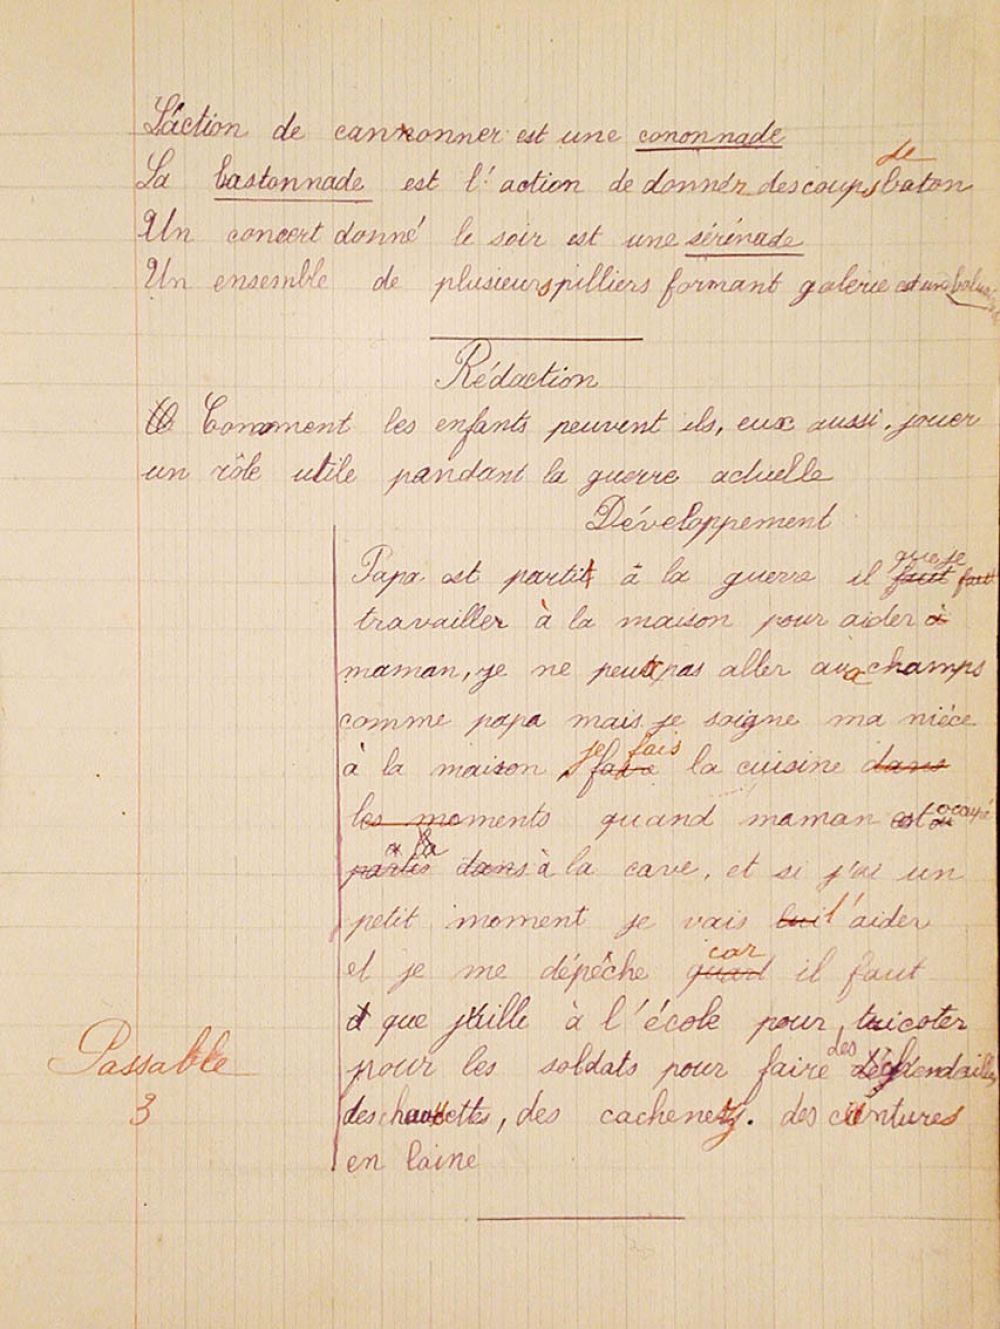 L'action de cannonner est une cononnade
de
La bastonnade est l'action de donnér des coups baton
Un concert donné le soir est une sérénade
Un ensemble de plusieurs pilliers formant galerie est une
Rédaction
Comment les enfants peuvent ils, eux aussi, jouer
un rôle utile pandant la guerre actuelle
Développement
que je
Papa est partit à la guerre il faut fait
travailler à la maison pour aider à
maman, je ne peux pas aller aux champs
comme papa mais je soigne ma nièce
je fais
à la maison faire la cuisine dans
occupé
les moments quand maman est
a la
partis dans à la cave, et si j'ai un
petit moment je vais lui l'aider
car
et je me dépêche quand il faut
que j'aille à l'école pour tricoter
des
pour les soldats pour faire
des chaussettes, des cachenez. des ceintures
en laine
Passable
3